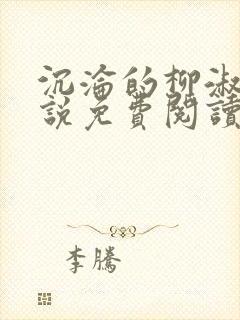 沉淪的柳淑
說免費閱讀
李騰